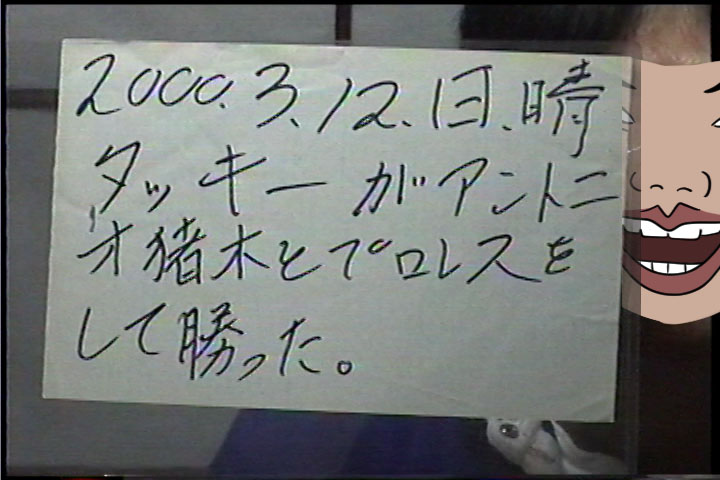 2000.3.12.日.晴
タッキーがアントニ
オ猪木とプロレスを
して勝った。